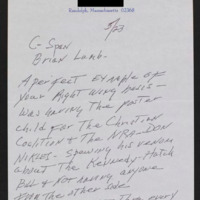 Randolph, Massachusetts 02368
5/23
C-Span
Brian Lamb-
A perfect example of
your Right wing bias -
was having the poster
child for the Christian
Coalition & the NRA - Don
Nikles - spewing his venom
about the Kennedy-Hatch
Bill & not having anyone
from the other side
every